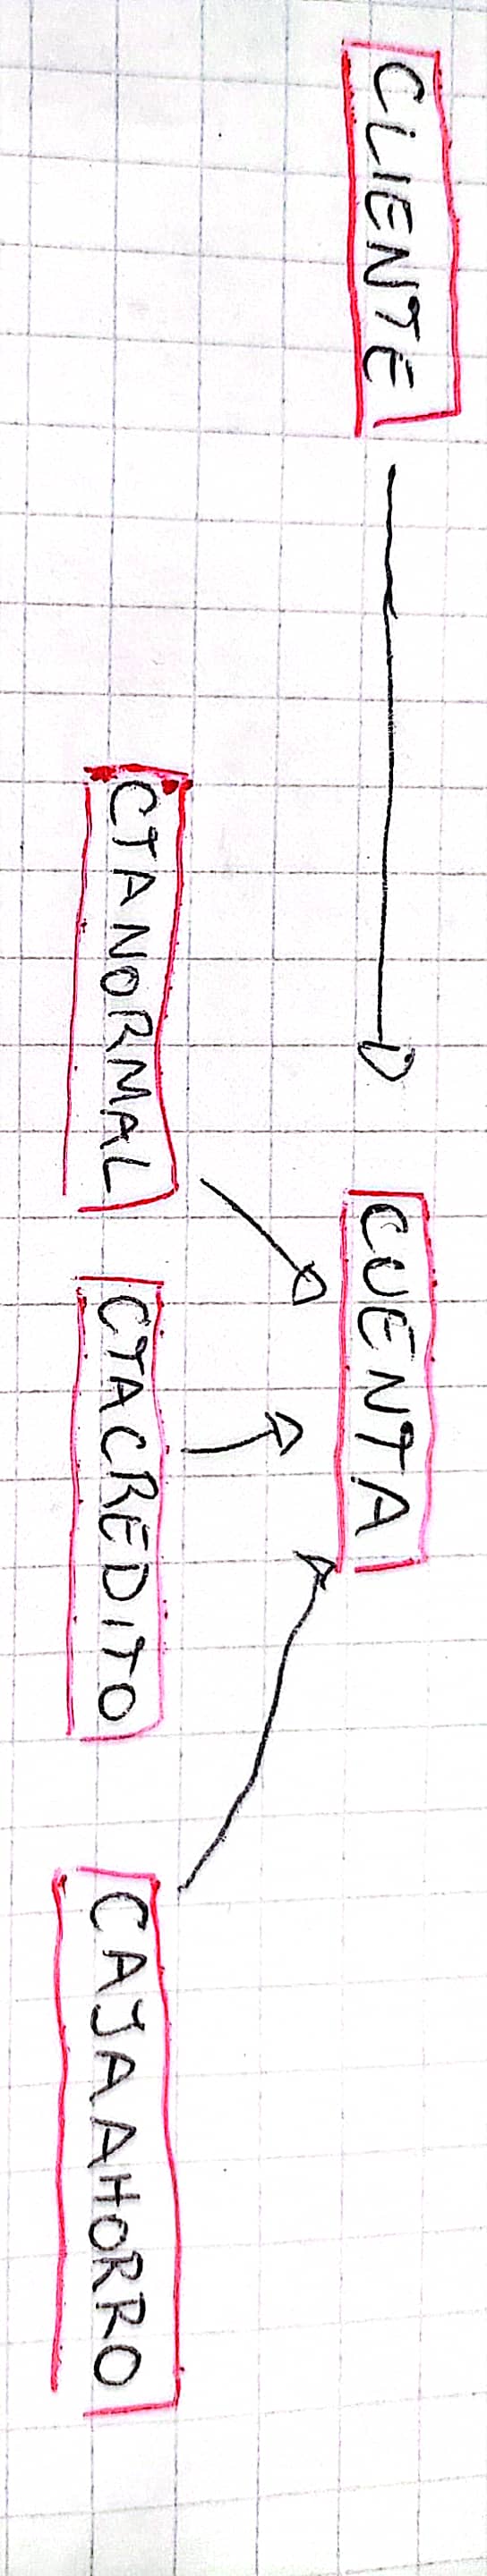 CLIENTE
CUENTA
CTANORMAL
CTACREDITO
CAJAAHORRO